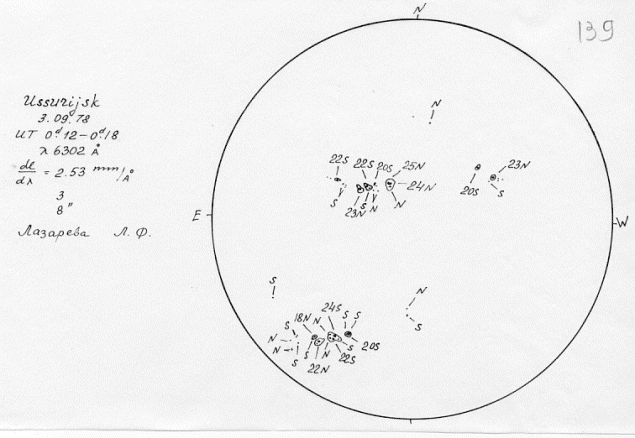 139
N
Ussurijsk
3.09.78
UT 0.ᵈ12–0.ᵈ18
λ 6302 Å
dl/dλ = 2.53 mm/Å
3
8"
Лазарева Л. Ф.
E
W
N
22S 22S 20S 25N
24N
S 23N S N N
23N
20S S
S
N
S
24S
18N N S S
S
N
N
S S N S 20S
22N 22S